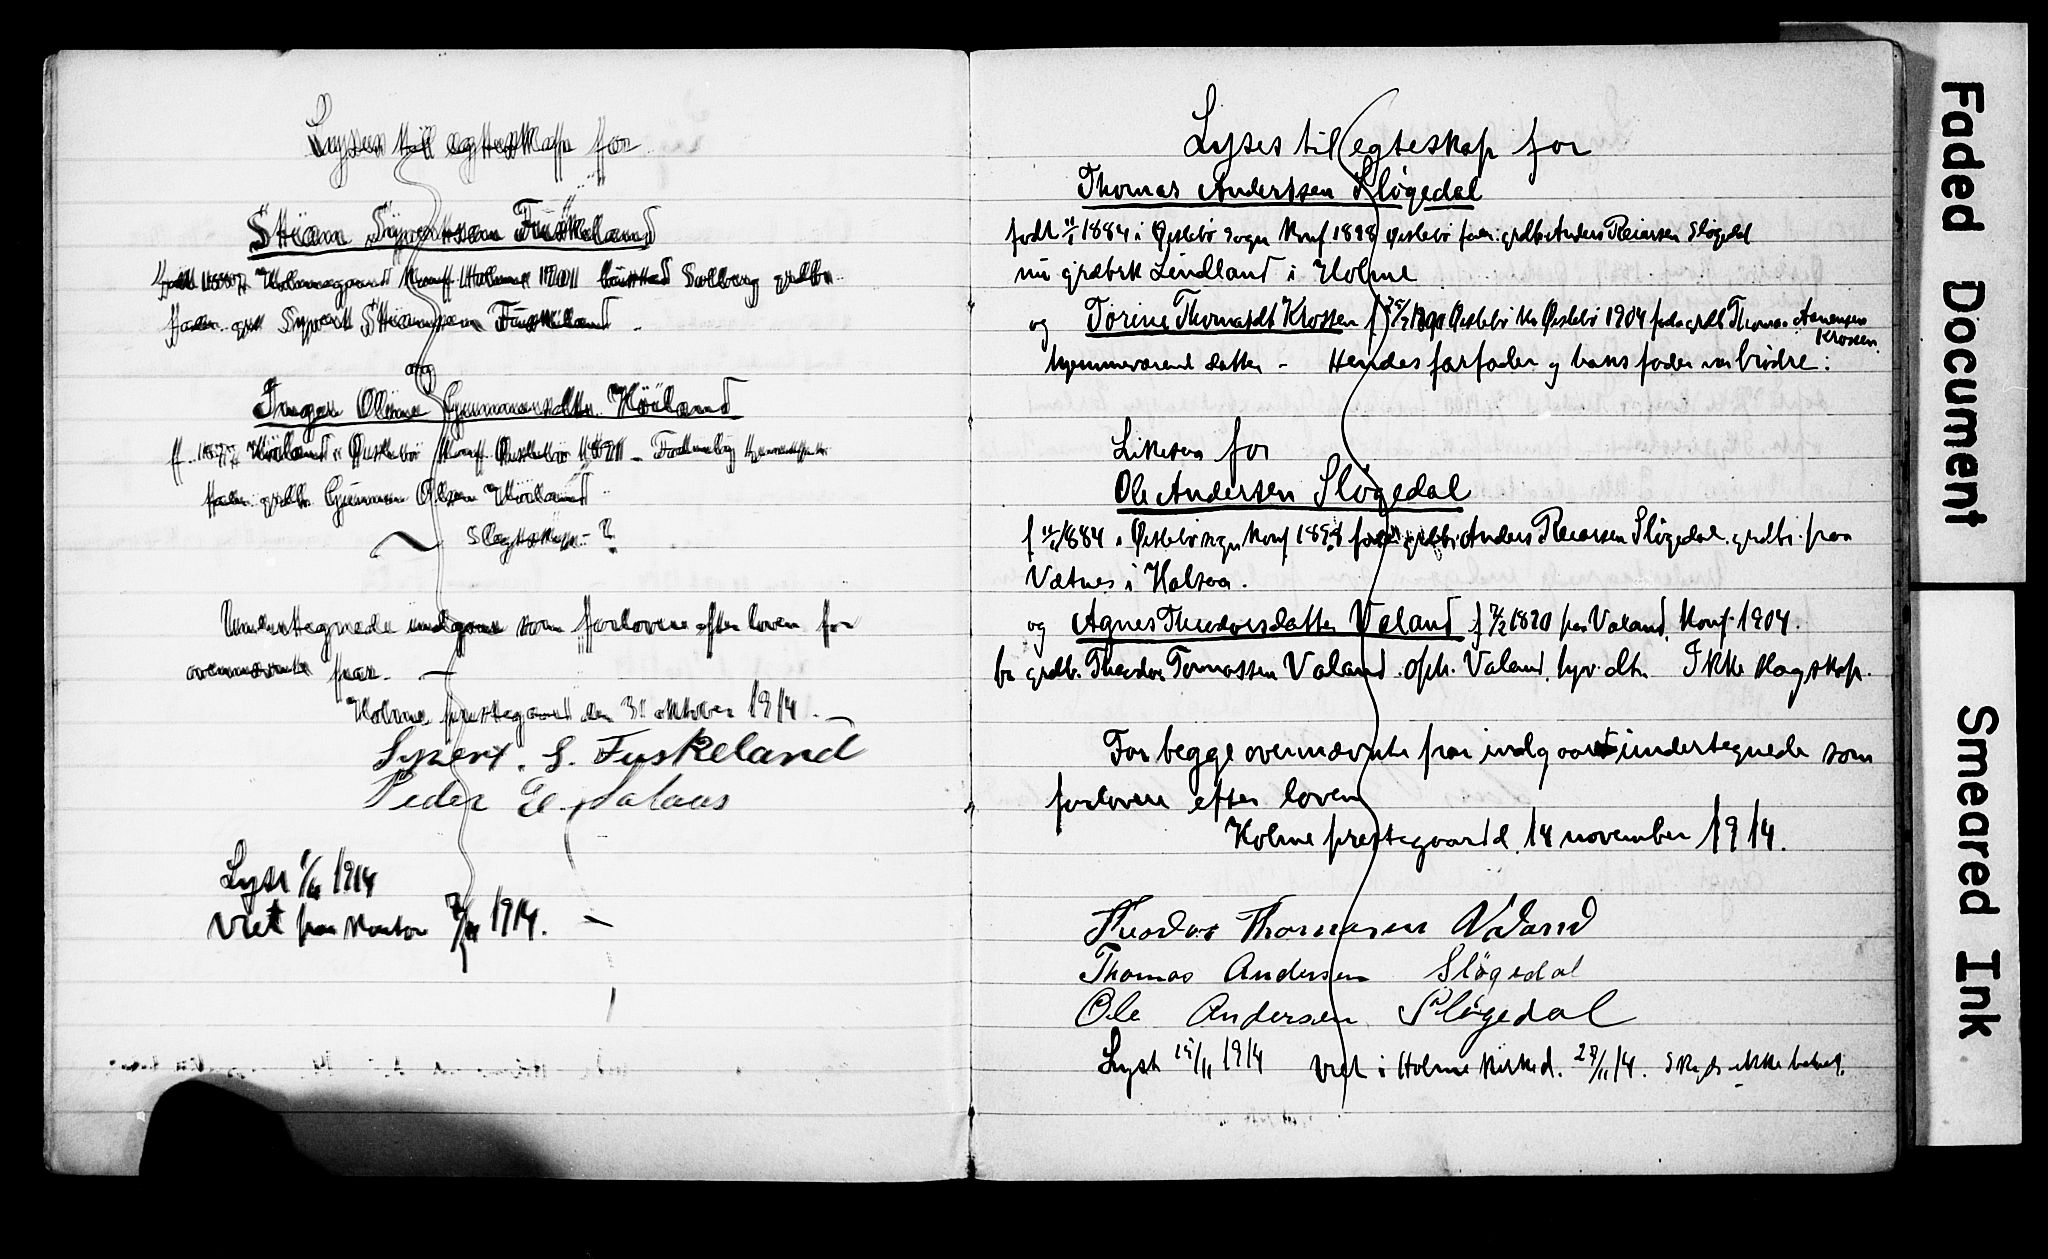 Lyses til egteskap for
Stian Syvertsen Fuskeland
Holmegaard Konf. Holme 1901 Solberg grdbr.
Fader: Syvert Stiansen Fuskeland
og
Inger Oline Gunnersdtr. Höiland
f. 1877 Höiland i Öislebö Konf. Öislebö 1891 -
Fader: grdbr. Gunner Olsen Höiland
Slegtskap - ?
Undertegnede indgaar som forlovere efter loven for
ovennævnte par. —
Holme prestegaard den 31 oktober 1914. —
Syvert. S. Fuskeland
Peder
Lyst 1/11 1914
Viet paa kontor 7/11 1914. —
Lyses til egteskap for
Thomas Anderssen Slögedal
født 11/1 1884 i Øislebö sogn Konf 1898 Øislebö fader: grdbr Anders Reiersen Slögedal
nu grdbrk Lindland i Holme
og Torine Thomasdt Krossen f 1890 Øislebö k. Øislebö 1904 fader grdb Thomas Aanensen
Krossen.
hjemmeværende datter - Hendes farfader og hans fader var brödre.
Likesaa for
Ole Andersen Slögedal
f 11/1 1884 i Øislebö sogn Konf. 1898 fader grdbr Anders Reiersen Slögedal. grdbr. paa
Vatnes i Halsaa.
og Agnes Theodorsdatter Valand f 7/2 1890 paa Valand. Konf. 1904.
fa grdbr. Theodor Tomassen Valand. oph. Valand. hjv. dtr. Ikke slagskap.
For begge ovennævnte par indgaar undertegnede som
forlovere efter loven
Holme prestegaard d. 14 november 1914.
Theodor Thomasen Valand
Thomas Andersen Slögedal
Ole Andersen Slögedal
Lyst 15/11 1914 Viet i Holme kirke d. 27/11 14. ikke betalt.
Faded Document
Smeared Ink